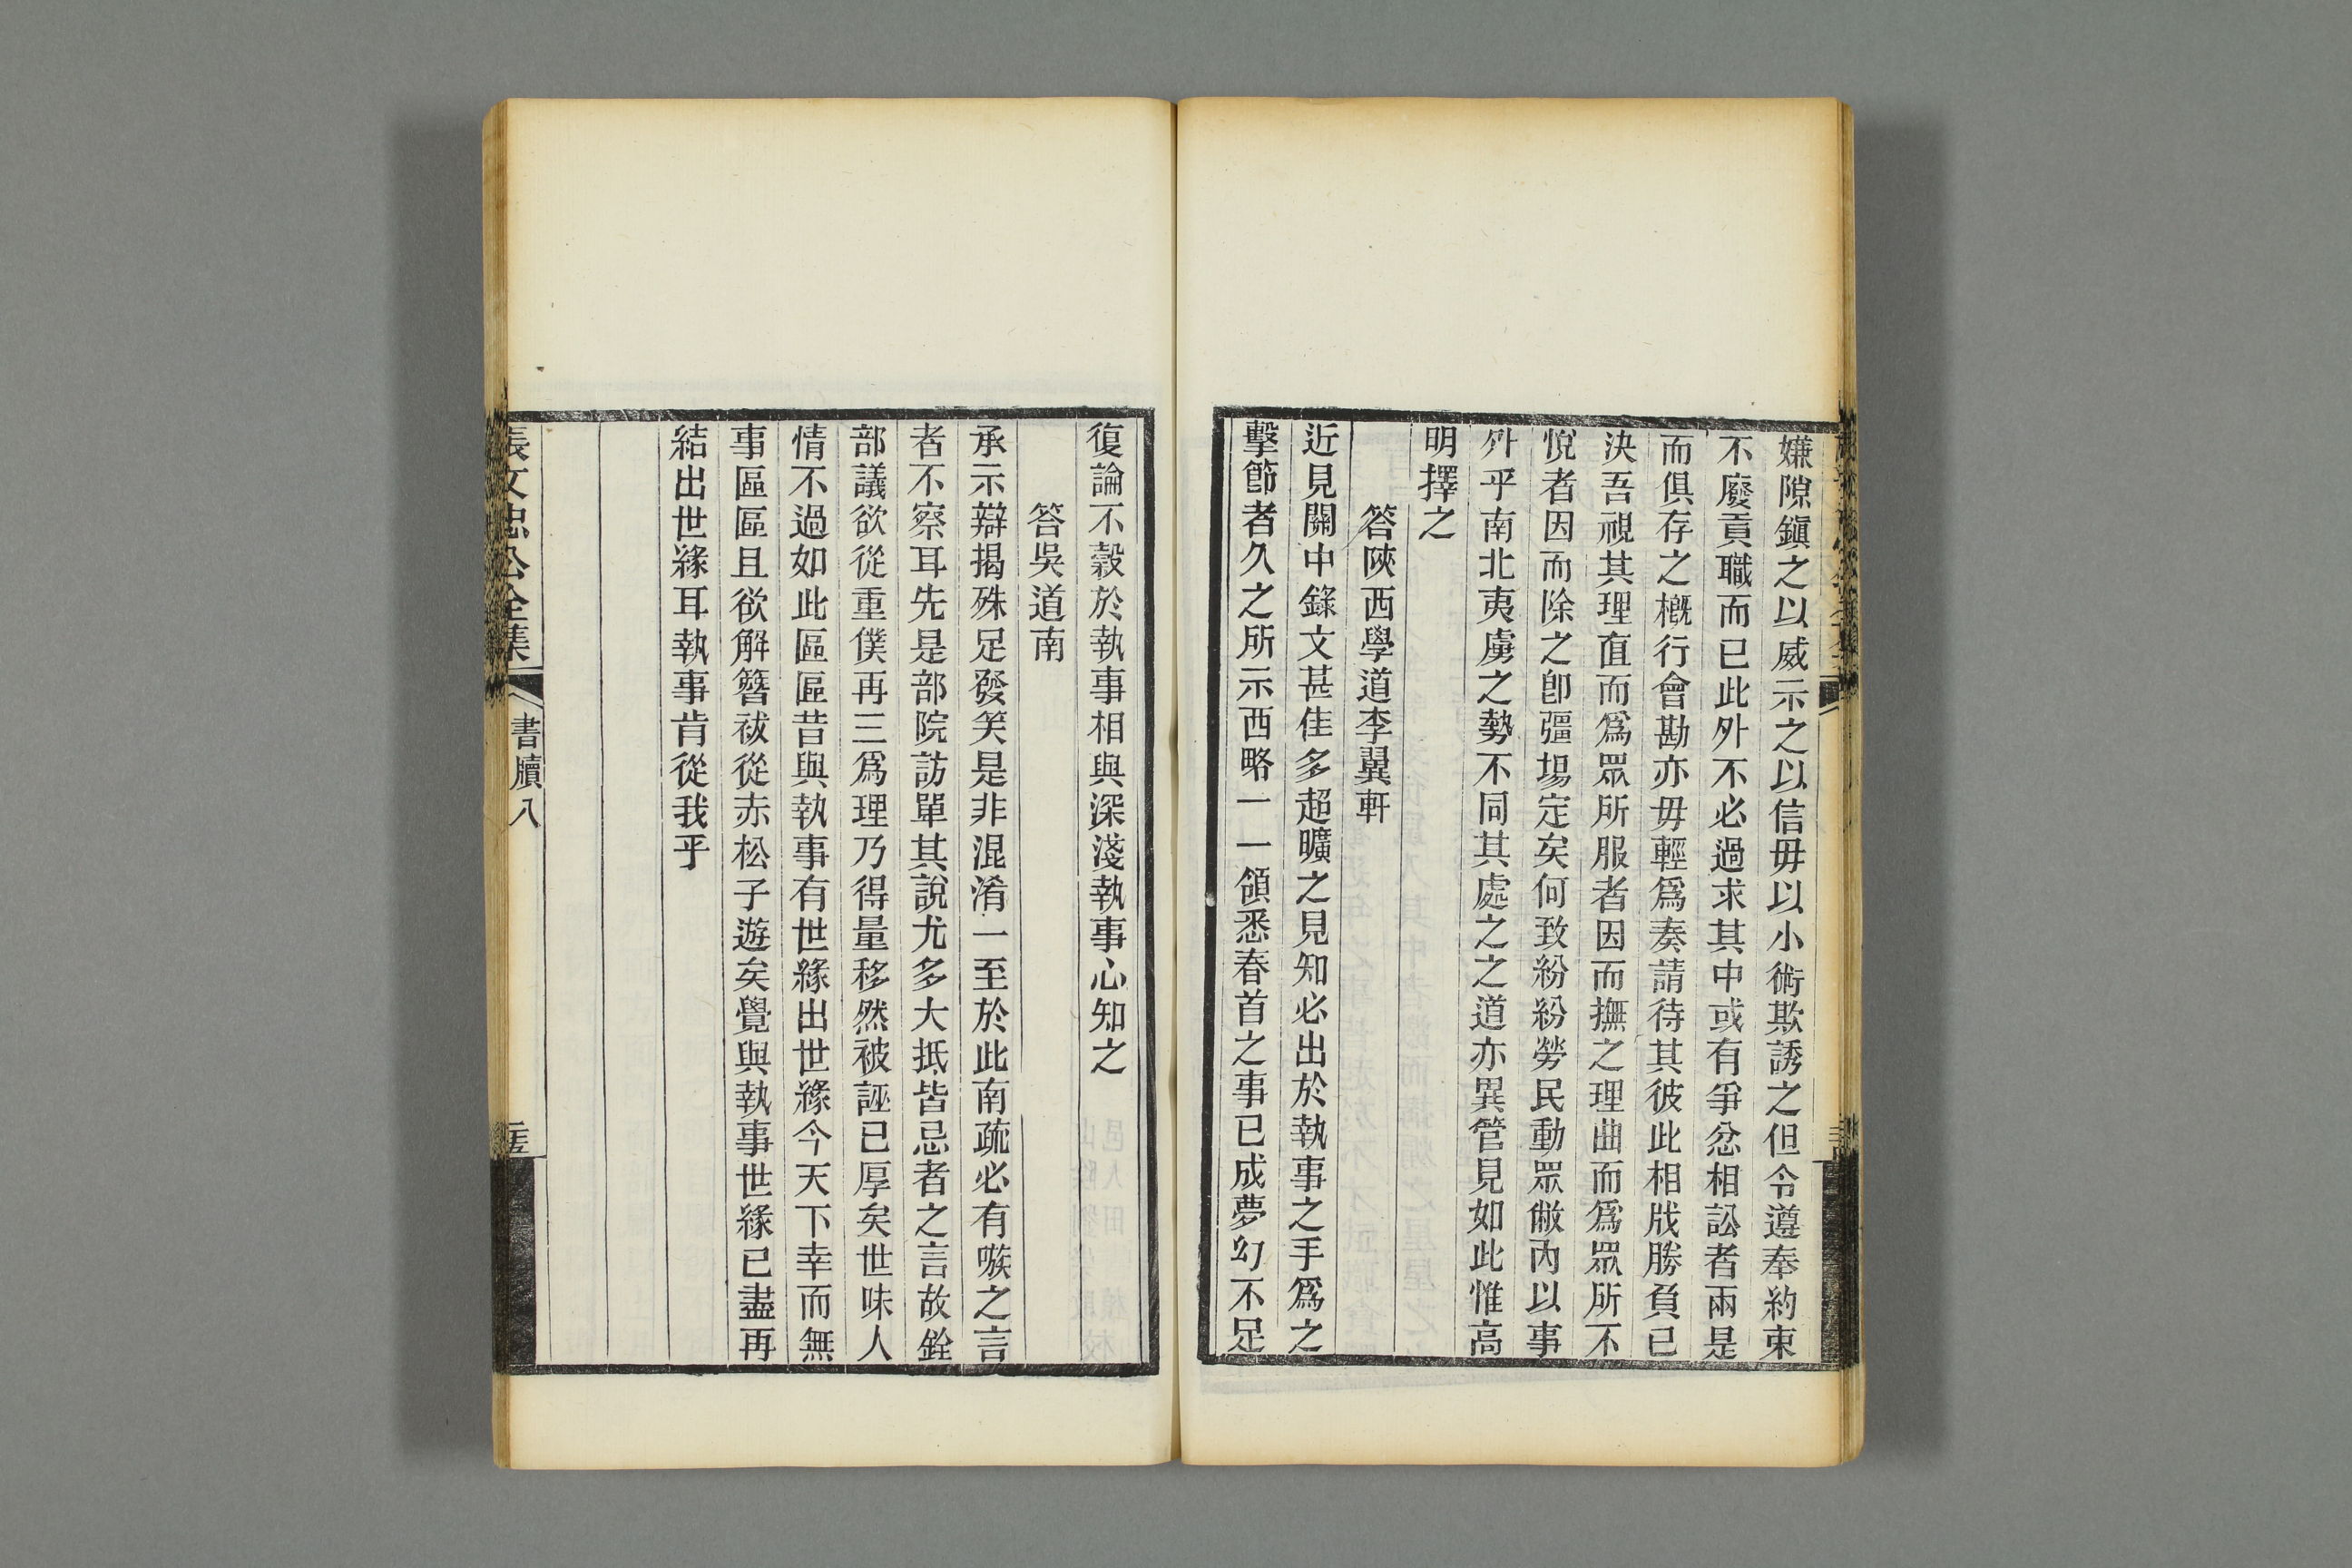 嫌隙鎭之以威示之以信毋以小術欺誘之但令遵奉約束
不廢貢職而已此外不必過求其中或有爭忿相訟者兩是
而俱存之槪行會勘亦毋輕爲奏請待其彼此相戕勝負已
決吾視其理直而爲眾所服者因而撫之理曲而爲眾所不
悅者因而除之卽彊場定矣何致紛紛勞民動眾敝內以事
外乎南北夷虜之勢不同其處之之道亦異管見如此惟高
明擇之
答陝西學道李翼軒
近見關中錄文甚佳多超曠之見知必出於執事之手爲之
擊節者久之所示西略一一領悉春首之事已成夢幻不足
復論不穀於執事相與深淺執事心知之
答吳道南
承示辯揭殊足發笑是非混淆一至於此南疏必有嗾之言
者不察耳先是部院訪單其說尤多大抵皆忌者之言故銓
部議欲從重僕再三爲理乃得量移然被誣已厚矣世味人
情不過如此區區昔與執事有世緣出世緣今天下幸而無
事區區且欲解簪袚從赤松子遊矣覺與執事世緣已盡再
結出世緣耳執事肯從我乎
張文忠公全集
書牘八